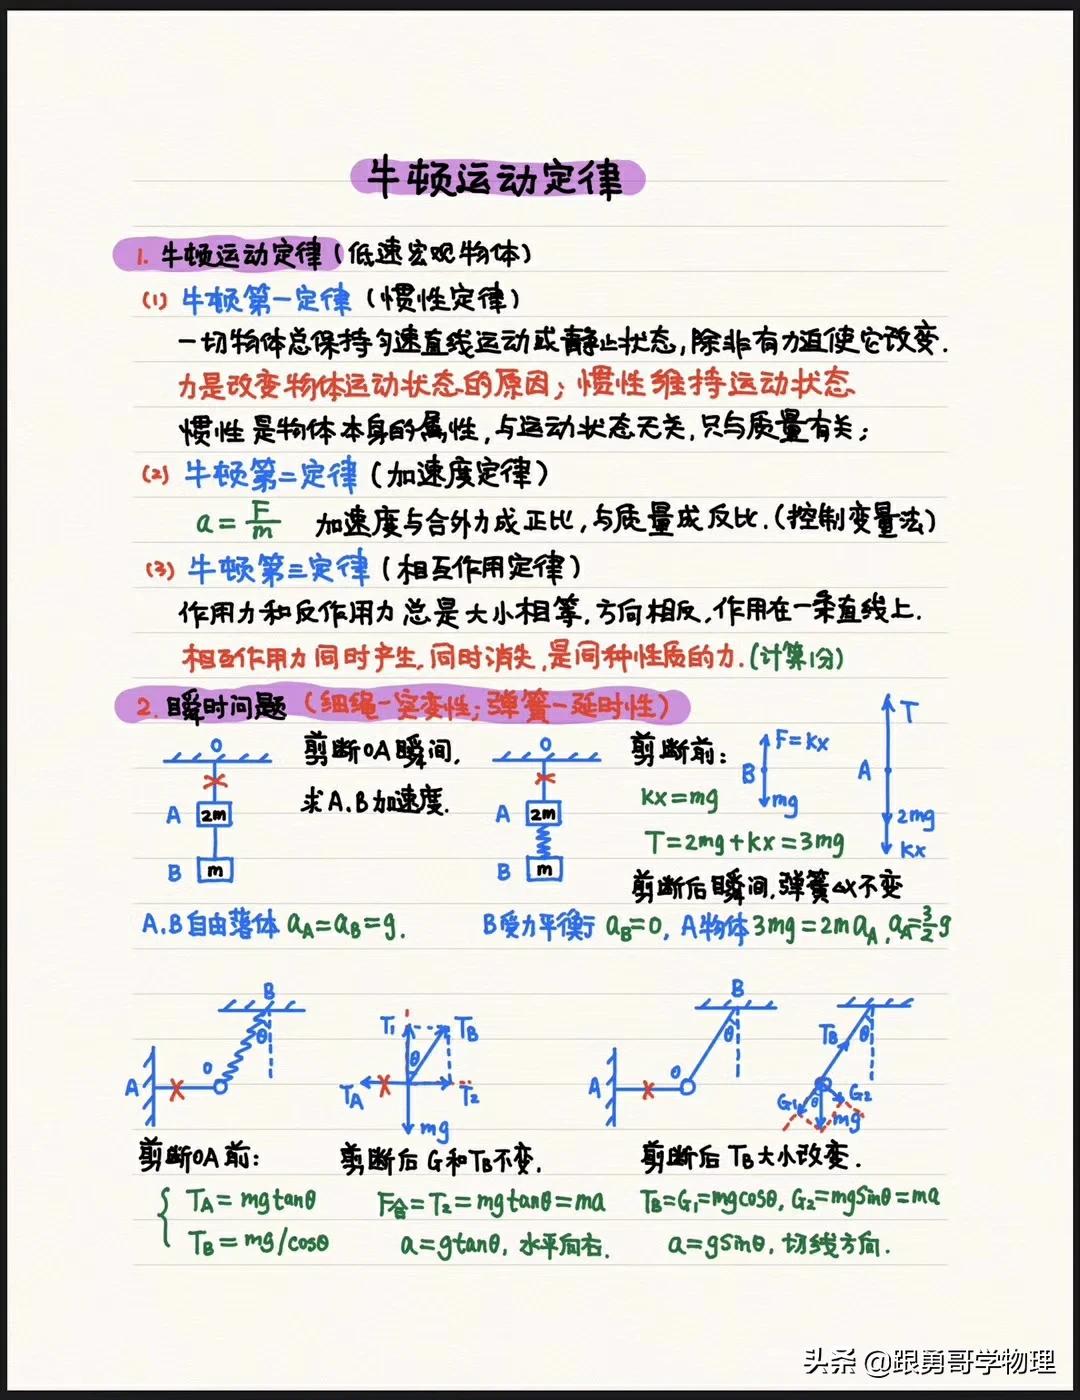 牛顿运动定律
1. 牛顿运动定律(低速宏观物体)
(1) 牛顿第一定律(惯性定律)
一切物体总保持匀速直线运动或静止状态,除非有力迫使它改变.
力是改变物体运动状态的原因;惯性维持运动状态
惯性是物体本身的属性,与运动状态无关,只与质量有关;
(2) 牛顿第二定律(加速度定律)
a=F/m 加速度与合外力成正比,与质量成反比.(控制变量法)
(3) 牛顿第三定律(相互作用定律)
作用力和反作用力总是大小相等,方向相反,作用在一条直线上.
相互作用力同时产生,同时消失,是同种性质的力.(计算1分)
2. 瞬时问题(细绳—突变性;弹簧—延时性)
O
A 2m
B m
剪断OA瞬间,
求A.B加速度.
O
A 2m
B m
剪断前:
kx=mg
T=2mg+kx=3mg
B F=kx
mg
A T
2mg
kx
剪断后瞬间,弹簧△x不变
A.B自由落体 aA=aB=g.
B受力平衡 aB=0, A物体3mg=2maA, aA=3/2g
B
θ
O
A
T1 TB
θ
TA T2
mg
B
θ
O
A
TB θ
G1 θ G2
mg
剪断OA前:
TA=mgtanθ
TB=mg/cosθ
剪断后G和TB不变.
F合=T2=mgtanθ=ma
a=gtanθ, 水平向右.
剪断后TB大小改变.
TB=G1=mgcosθ, G2=mgsinθ=ma
a=gsinθ, 切线方向.
头条 @跟勇哥学物理